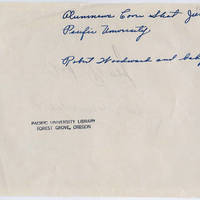 Alumnews Cover Shot Ju
Pacific University
Robert Woodward and bab
PACIFIC UNIVERSITY LIBRARY
FOREST GROVE, OREGON